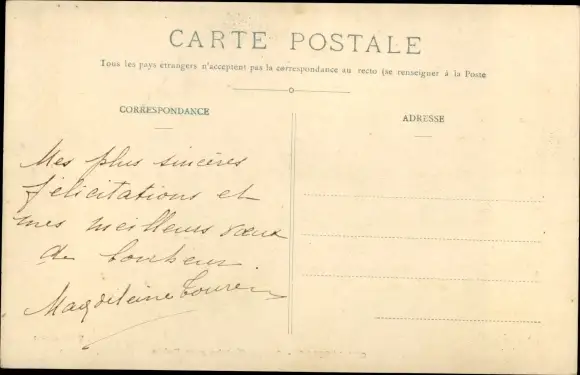 CARTE POSTALE
Tous les pays étrangers n'acceptent pas la correspondance au recto (se renseigner à la Poste
CORRESPONDANCE
ADRESSE
Mes plus sincères
félicitations et
mes meilleurs vœux
de bonheur.
Magdeleine